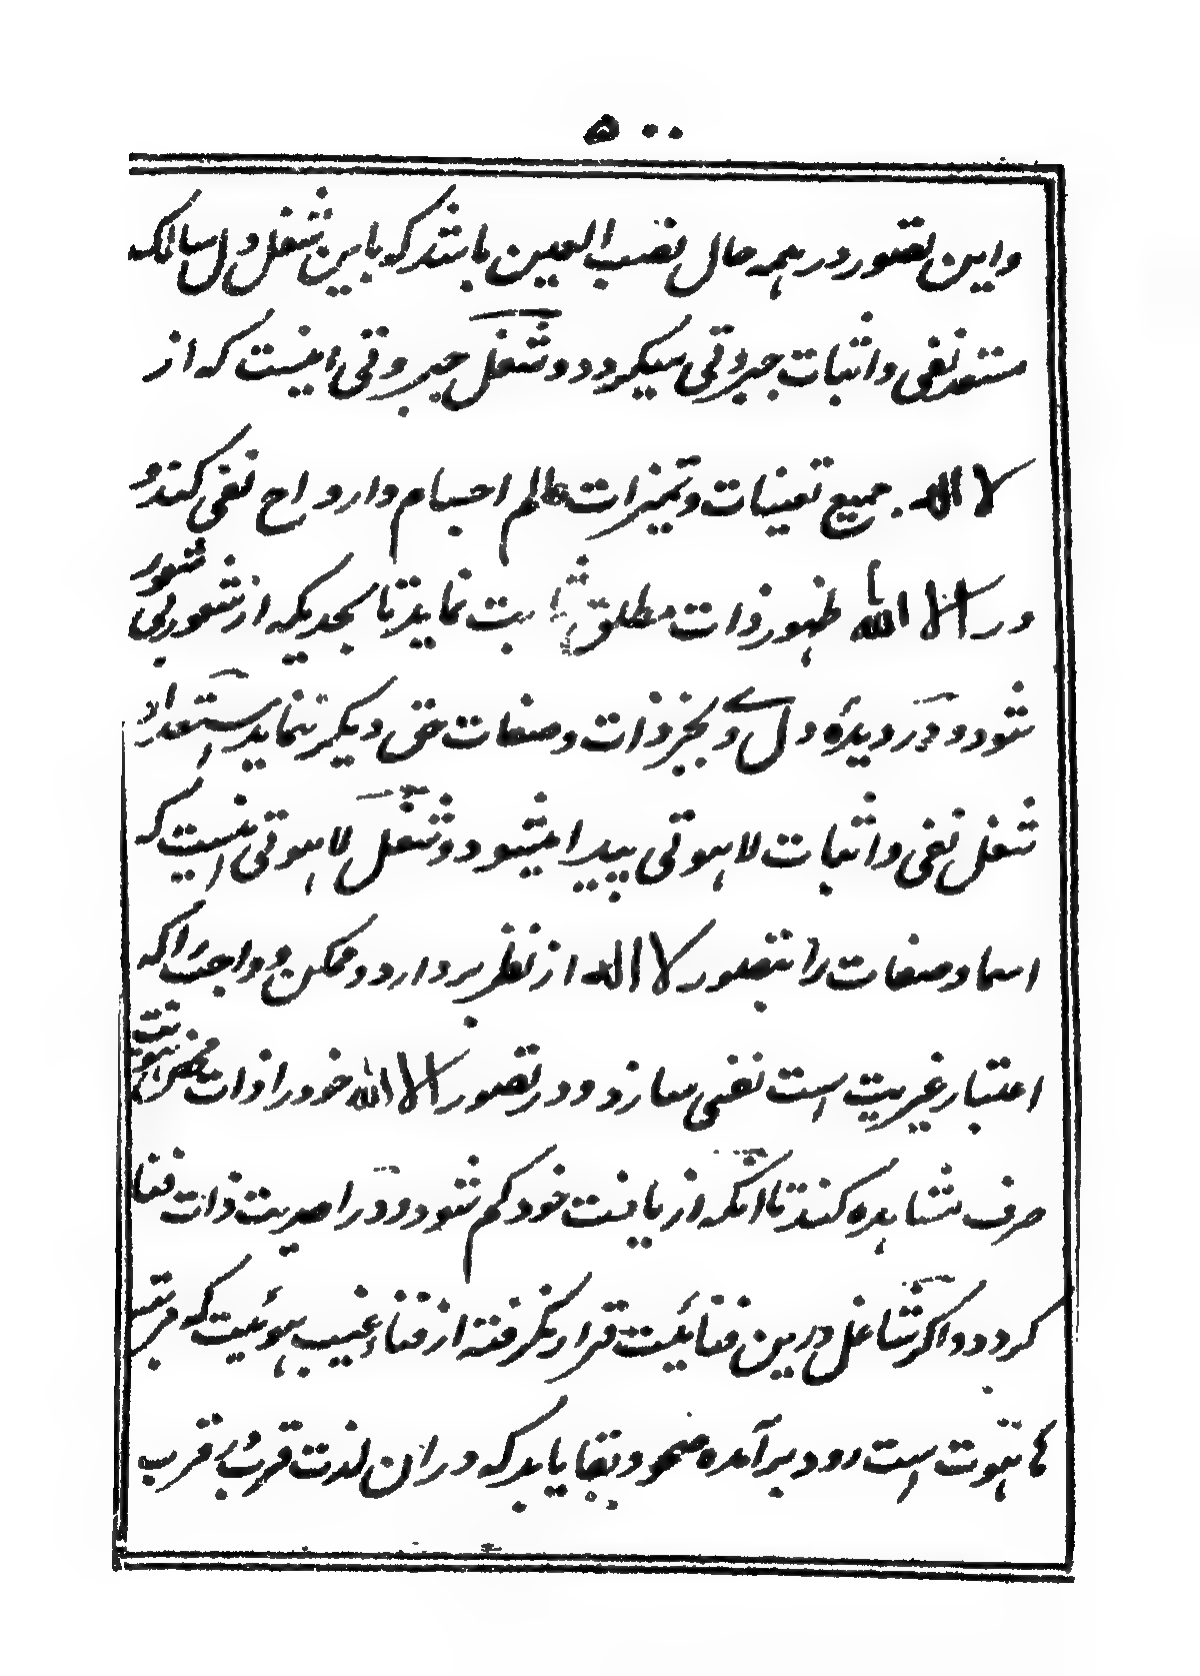 ۵۰۰
واین تصور در همه حال نصب العین باشد که باین شغل دل سالک
مستعد نفی و اثبات جبروتی میکردد و شغل جبروتی اینست که از
لا اله جمیع تعینات و تمیزات عالم اجسام و ارواح نفی کند و
در الا الله ظهور ذات مطلق ثابت نماید تا بحدیکه از شعور بی شعور
شود و در دیدهٔ دل وی بجز ذات و صفات حق دیگر ننماید استعداد
شغل نفی و اثبات لاهوتی پیدا میشود و شغل لاهوتی اینست که
اسما و صفات را بتصور لا اله از نظر بردارد و ممکن و واجب را که
اعتبار غیریت است نفی سازد و در تصور الا الله خود را ذات محض هویت
صرف مشاهده کند تا انکه از یافت خود کم شود و در احدیت ذات فنا
کردد و اکر شاغل درین فنائیت قرار نکرفته از فناء غیب هوئیت که مرتبه
هاهوت است رود برآمده صحو و بقا یابد که دران لذت قرب